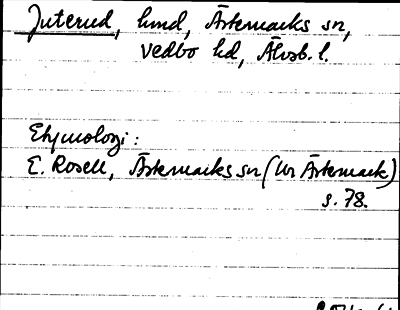 Juterud, hmd, Ärtemarks sn,
Vedbo hd, Älvsb. l.
Etymologi:
E. Rosell, Ärtemarks sn (Ur Ärtemark)
s. 78.